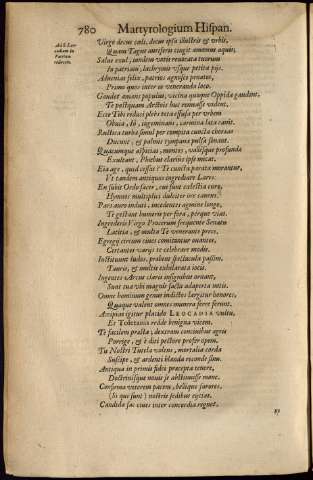 780 Martyrologium Hispan.
Ad S. Leocadiam in Patriam redeuntem.
Virgo decus cœli, decus ipsa illustris & vrbis,
Quam Tagus auriferis cingit amœnus aquis,
Salue exul, tandem votis reuocata tuorum
In patriam, lachrymis vsque petita pijs.
Aduenias felix, patrios agnosce penates,
Primo quos inter es veneranda loco.
Gaudet amans populus, vicina quoque Oppida gaudent,
Te postquam Arctois huc remeasse vident.
Ecce Tibi reduci plebs tota effusa per urbem
Obuia, Iô, ingeminans, carmina læta canit.
Rustica turba simul per compita cuncta choreas
Ducunt, & pedibus tympana pulsa sonant.
Quacumque aspicias, montes, vallesque profundæ
Exultant, Phœbus clarior ipse micat.
Eia age, quid cessas? Te cuncta parata morantur,
Vt tandem antiquos ingrediare Lares.
En subit Ordo sacer, cui sunt cælestia curæ,
Hymnos multiplici dulciter ore canens.
Pars auro induti, incedentes agmine longo,
Te gestant humeris per fora, perque vias.
Ingrederis Virgo Procerum frequente Senatu
Lætitia, & multa Te venerante prece.
Egregij circum ciues comitantur ouantes,
Certantes varys te celebrare modis.
Instituunt ludos, præbent spectacula passim,
Tauris, & multis exhilarata iocis.
Ingentes Arcus claris insigniter ornant,
Sunt tua vbi magnis facta adaperta notis.
Omne hominum genus indictos largitur honores,
Quæque valent omnes munera ferre ferunt.
Accipias igitur placido LEOCADIA vultu,
Et Toletanis redde benigna vicem.
Te facilem præsta; dextram contibus ægris
Porrige, & è diti pectore profer opem.
Tu Nostri Tutela valens, mortalia corda
Suscipe, & ardenti blanda reconde sinu.
Antiqua in primis fidei præcepta tenere,
Doctrinisque nouis fac abstinuisse manus.
Confirma viterem pacem, bellique furores,
(Si qui sunt) nostris sedibus eijciat.
Candida fac ciues inter concordia regnet,